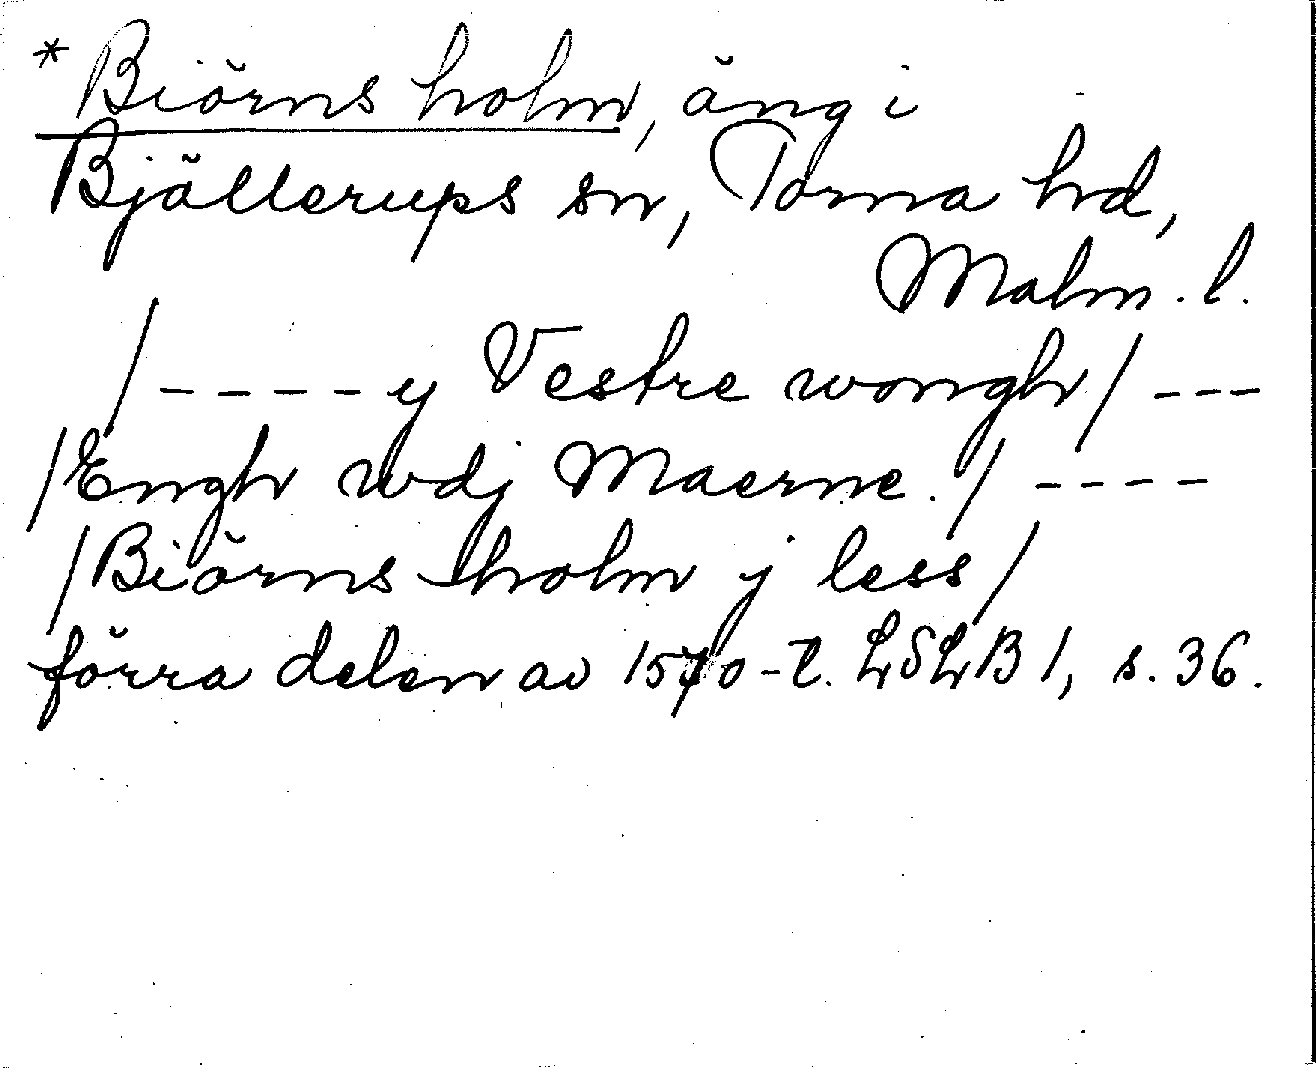 * Biörns holm, äng i
Bjällerups sn, Torna hd,
Malm. l.
/ - - - - y Vestre wongh / - - -
/ Engh wdj Maerne. / - - - -
/ Biörns holm y less /
förra delen av 1570-t. LSLB 1, s. 36.